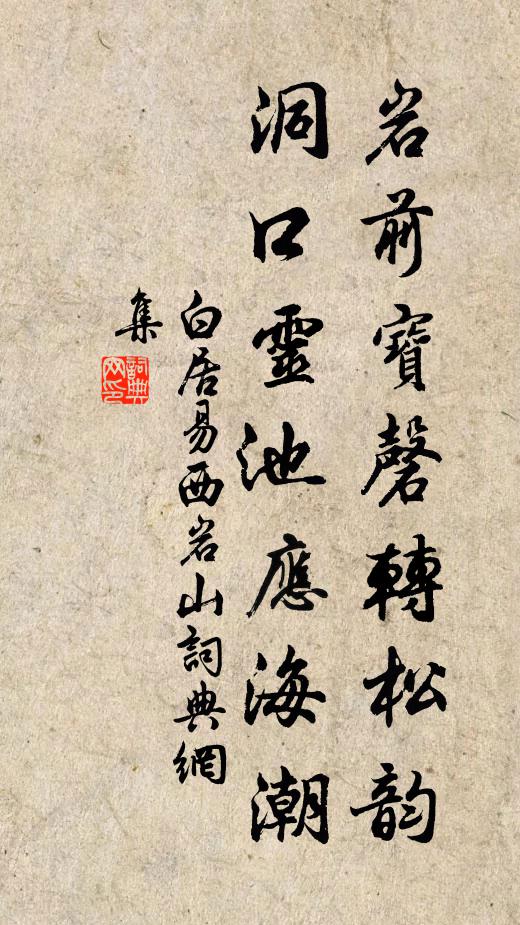 岩前寶磬轉松韵
洞口靈池應海潮
白居易西岩山詞典網
集
詞典網印